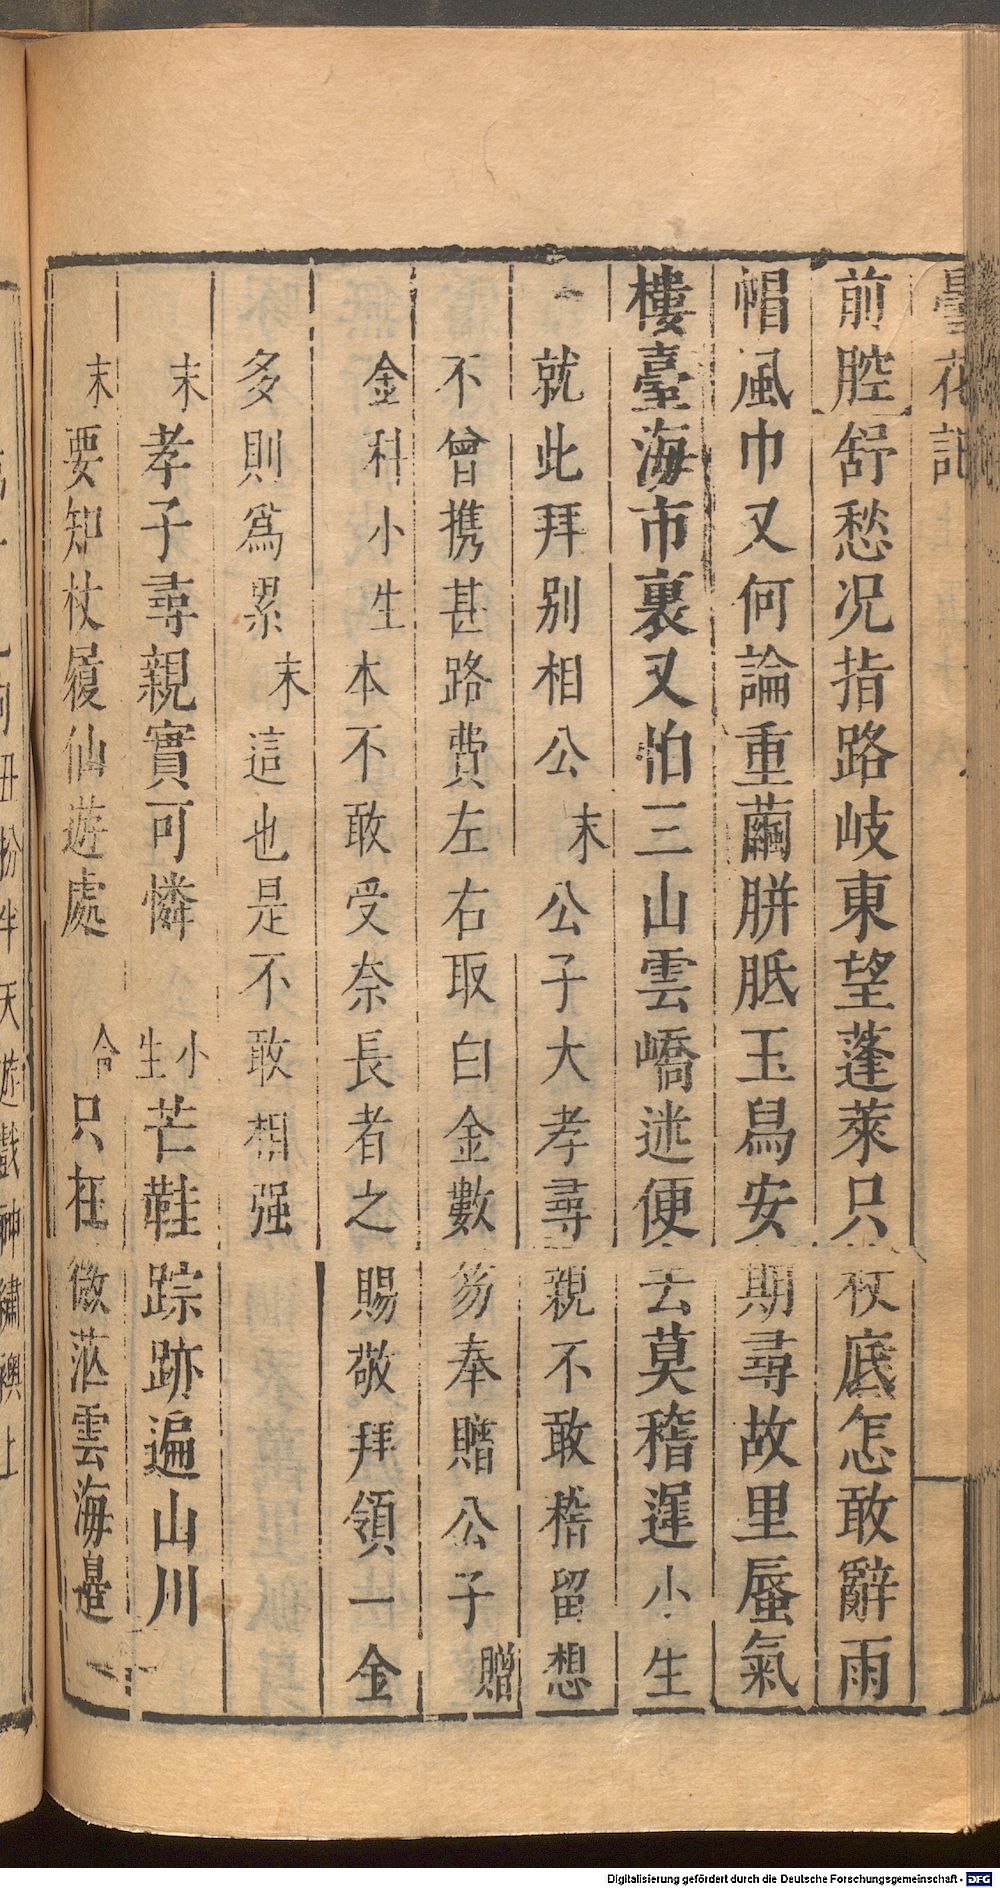 曇花記
前腔舒愁况指路岐東望蓬萊只杖底怎敢辭雨
帽風巾又何論重繭胼胝玉舄安期尋故里蜃氣
樓臺海市裏又怕三山雲嶠迷便去莫稽遲小生
就此拜别相公末公子大孝尋親不敢稽留想
不曾携甚路費左右取白金數笏奉贈公子贈
金科小生本不敢受奈長者之賜敬拜領一金
多則爲累末這也是不敢相强
末孝子尋親實可憐 小生芒鞋踪跡遍山川
末要知杖履仙遊處 合只在微茫雲海邊
丑扮半天遊戲神繡襖上
Digitalisierung gefördert durch die Deutsche Forschungsgemeinschaft - DFG